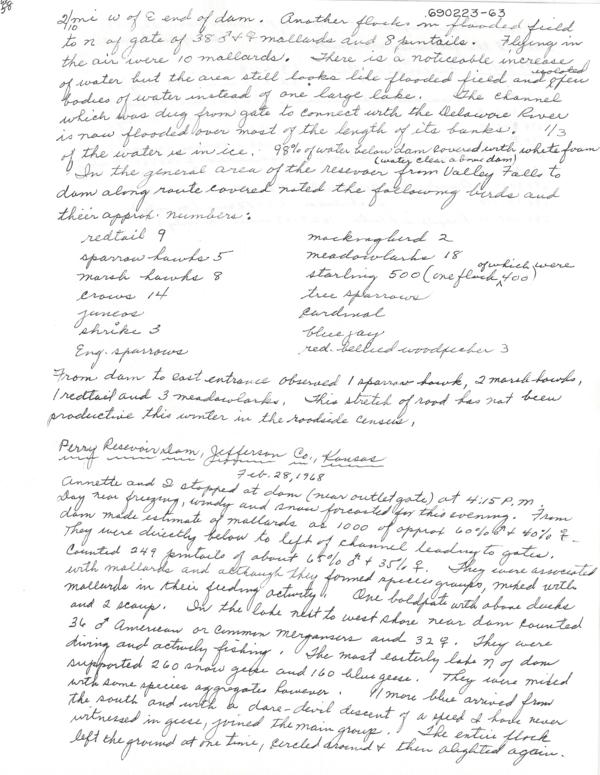 690223-63
2/10 mi w of E end of dam. Another flocks in flooded field
to n of gate of 38 ♂ & ♀ mallards and 8 pintails. Flying in
the air were 10 mallards. There is a noticeable increase
of water but the area still looks like flooded field and isolated open
bodies of water instead of one large lake. The channel
which was dug from gate to connect with the Delaware River
is now flooded over most of the length of its banks. 1/3
of the water is in ice. 98% of water below dam covered with white foam
(water clear above dam)
In the general area of the resevoir from Valley Falls to
dam along route covered noted the following birds and
their approx. numbers:
redtail 9 mockingbird 2
sparrow hawks 5 meadowlarks 18
marsh hawks 8 starling 500 (one flock of which were 400)
crows 14 tree sparrows
juncos cardinal
shrike 3 blue jay
Eng. sparrows red-bellied woodpecker 3
From dam to east entrance observed 1 sparrow hawk, 2 marsh hawks,
1 redtail and 3 meadowlarks. This stretch of road has not been
productive this winter in the roadside census.
Perry Resevoir Dam, Jefferson Co., Kansas
Feb. 28, 1968
Annette and I stopped at dam (near outlet gate) at 4:15 P.M.
Day near freezing, windy and snow forcasted for this evening. From
dam made estimate of mallards as 1000 of approx 60% ♂ & 40% ♀-
They were directly below to left of channel leading to gates.
Counted 249 pintails of about 65% ♂ + 35% ♀. They were associated
with mallards and although they formed species groups, mixed with
mallards in their feeding activity. One baldpate with above ducks
and 2 scaup. In the lake next to west shore near dam counted
36 ♂ American or Common Mergansers and 32 ♀. They were
diving and actively fishing. The most easterly lake n of dam
supported 260 snow geese and 160 blue geese. They were mixed
with some species aggregates however. 11 more blue arrived from
the south and with a dare-devil descent of a speed I have never
witnessed in geese, joined the main group. The entire flock
left the ground at one time, circled around & then alighted again.